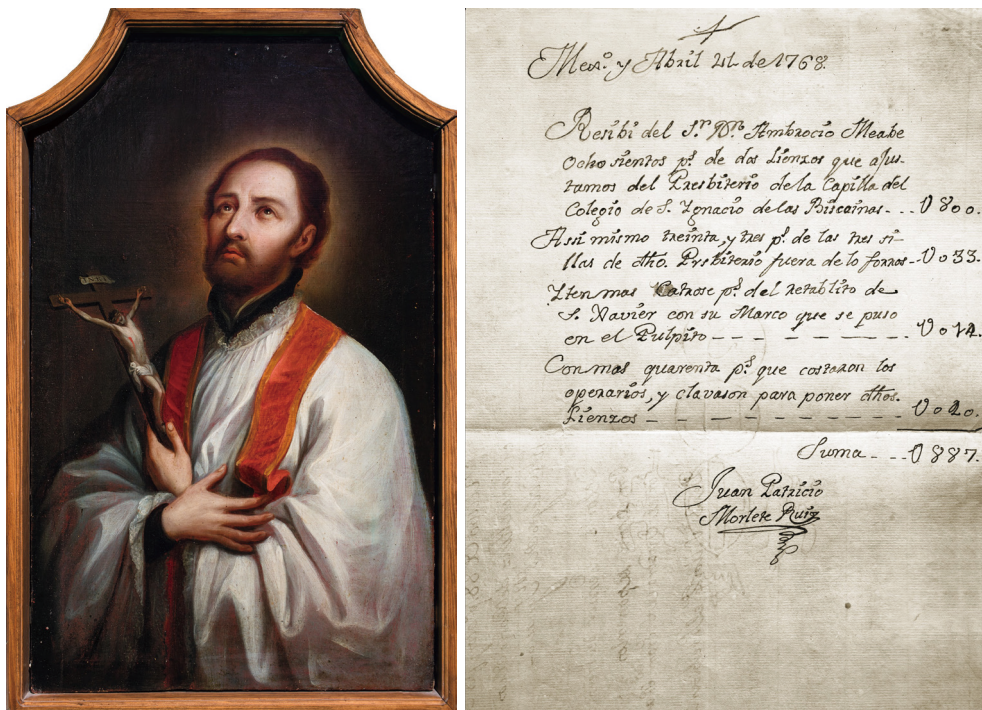 Mexº. y Abril 21. de 1768.
Resibi del Sr. Dn. Ambrocio Meabe
Ocho sientos ps. de dos Lienzos que ajus-
tamos del Presbiterio de la Capilla del
Colegio de S. Ygnacio de las Biscainas - - - U 800.
Assi mismo treinta, y tres ps. de las tres si-
llas de dho. Presbiterio fuera de lo forros - U 033.
Yten mas Catrose ps. del retablito de
S. Xavier con su Marco que se puso
en el Pulpito - - - - - - U 014.
Con mas quarenta ps. que costaron los
operarios, y clavason para poner dhos.
Lienzos - - - - - - - - U 040.
Suma - - - U 887.
Juan Patricio
Morlete Ruiz